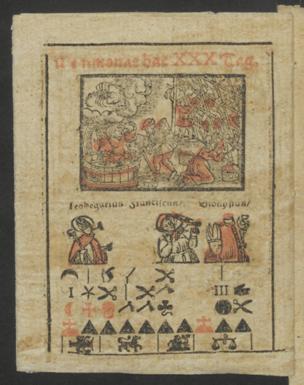 hat XXX Tag.
Leodegarius Franciscus/ Dionysius/
I III